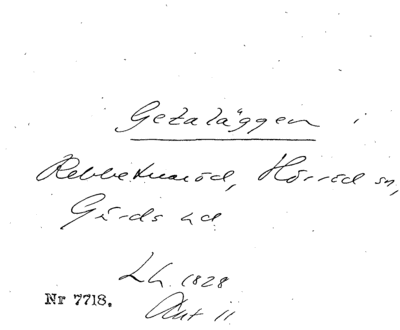 Getaläggen i
Rebbetuaröd, Hörröd sn,
Gärds hd
Lh. 1828
Nr 7718.
Akt 11